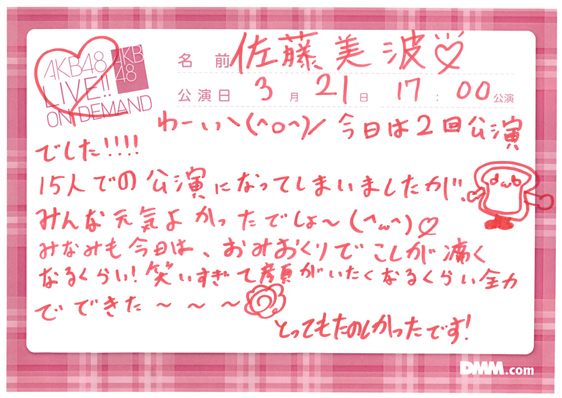 AKB48
LIVE!!
ON DEMAND
AKB
48
名前 佐藤美波♡
公演日 3月21日 17:00公演
わーい\(^o^)/今日は2回公演
でした!!!!
15人での公演になってしまいましたが、
みんな元気よかったでしょ〜(^ω^)♡
みなみも今日は、おみおくりでこしが痛く
なるくらい!笑いすぎて顔がいたくなるくらい全力
でできた〜〜〜
とってもたのしかったです!
DMM.com